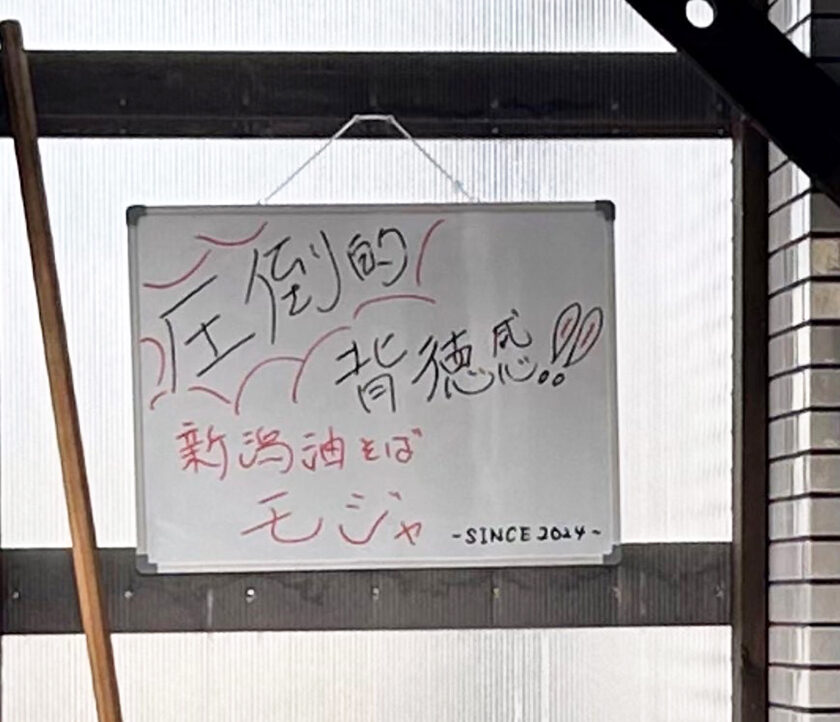 圧倒的
背徳感!!
新潟油そば
モジャ
-SINCE 2024-